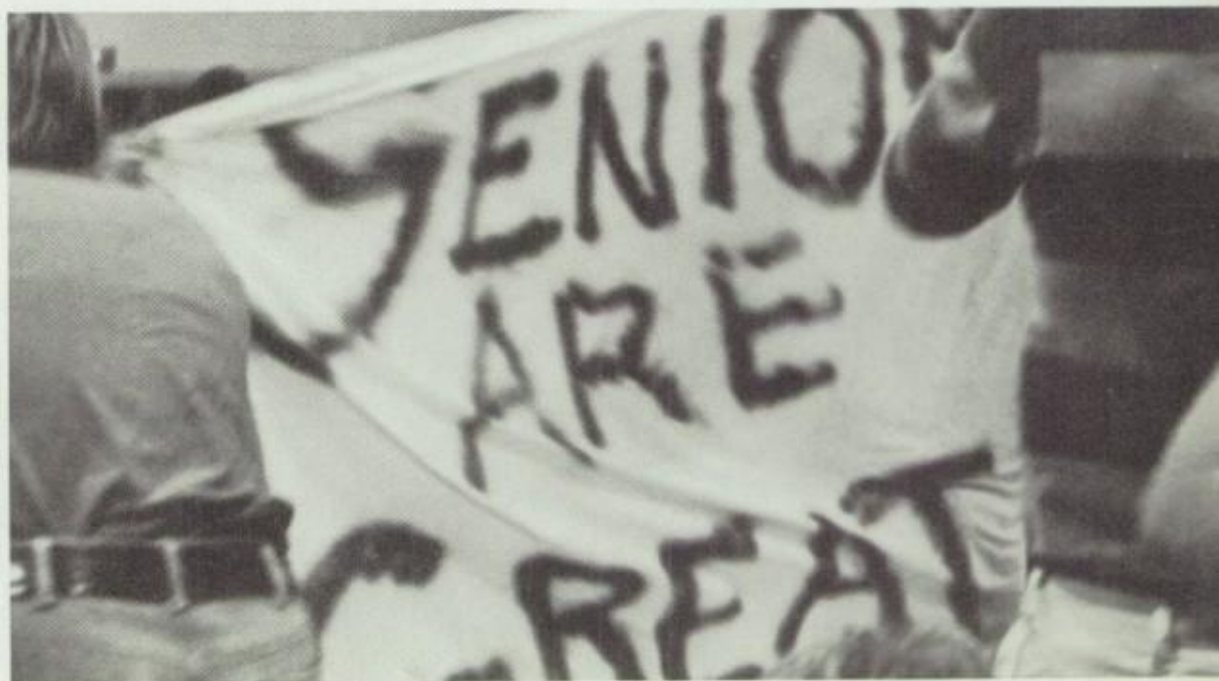 SENIOR
ARE
GREAT